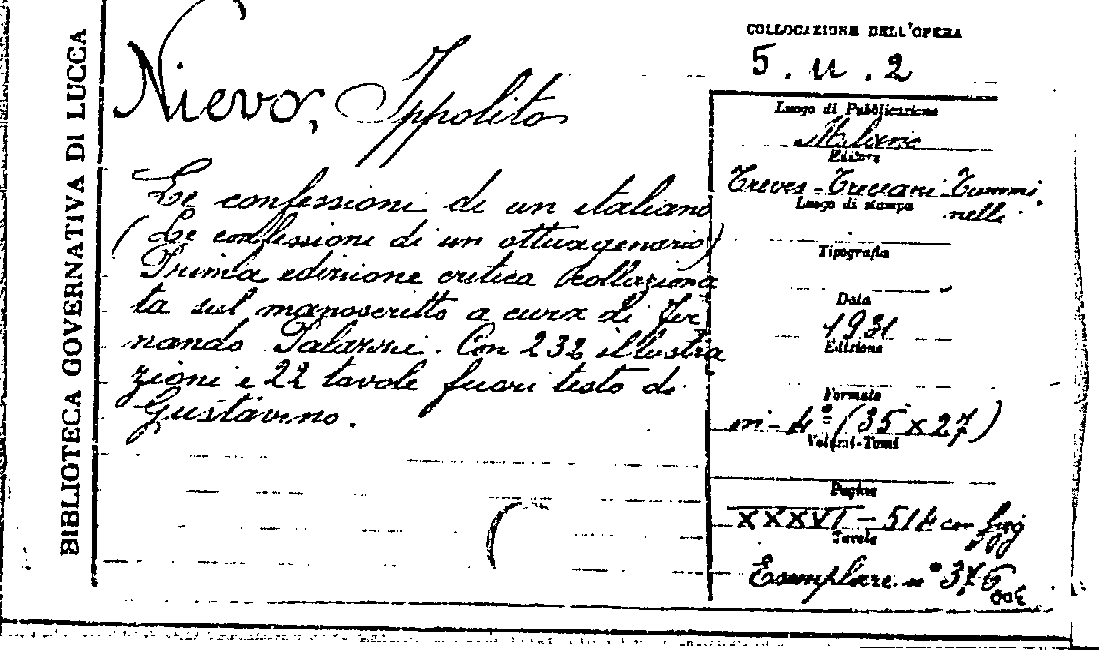 BIBLIOTECA GOVERNATIVA DI LUCCA
COLLOCAZIONE DELL'OPERA
5. u. 2
Nievo, Ippolito
Le confessioni di un italiano
(Le confessioni di un ottuagenario)
Prima edizione critica collaziona
ta sul manoscritto a cura di Fer
nando Palazzi. Con 232 illustra
zioni e 22 tavole fuori testo di
Gustavino.
Luogo di Pubblicazione
Milano
Editore
Treves-Treccani-Tummi.
nelli
Luogo di stampa
Tipografia
Data
1931
Edizione
Formato
in-4º (35 x 27)
Volumi-Tomi
Pagine
XXXVI - 514 con figg
Tavole
Esemplare nº 376